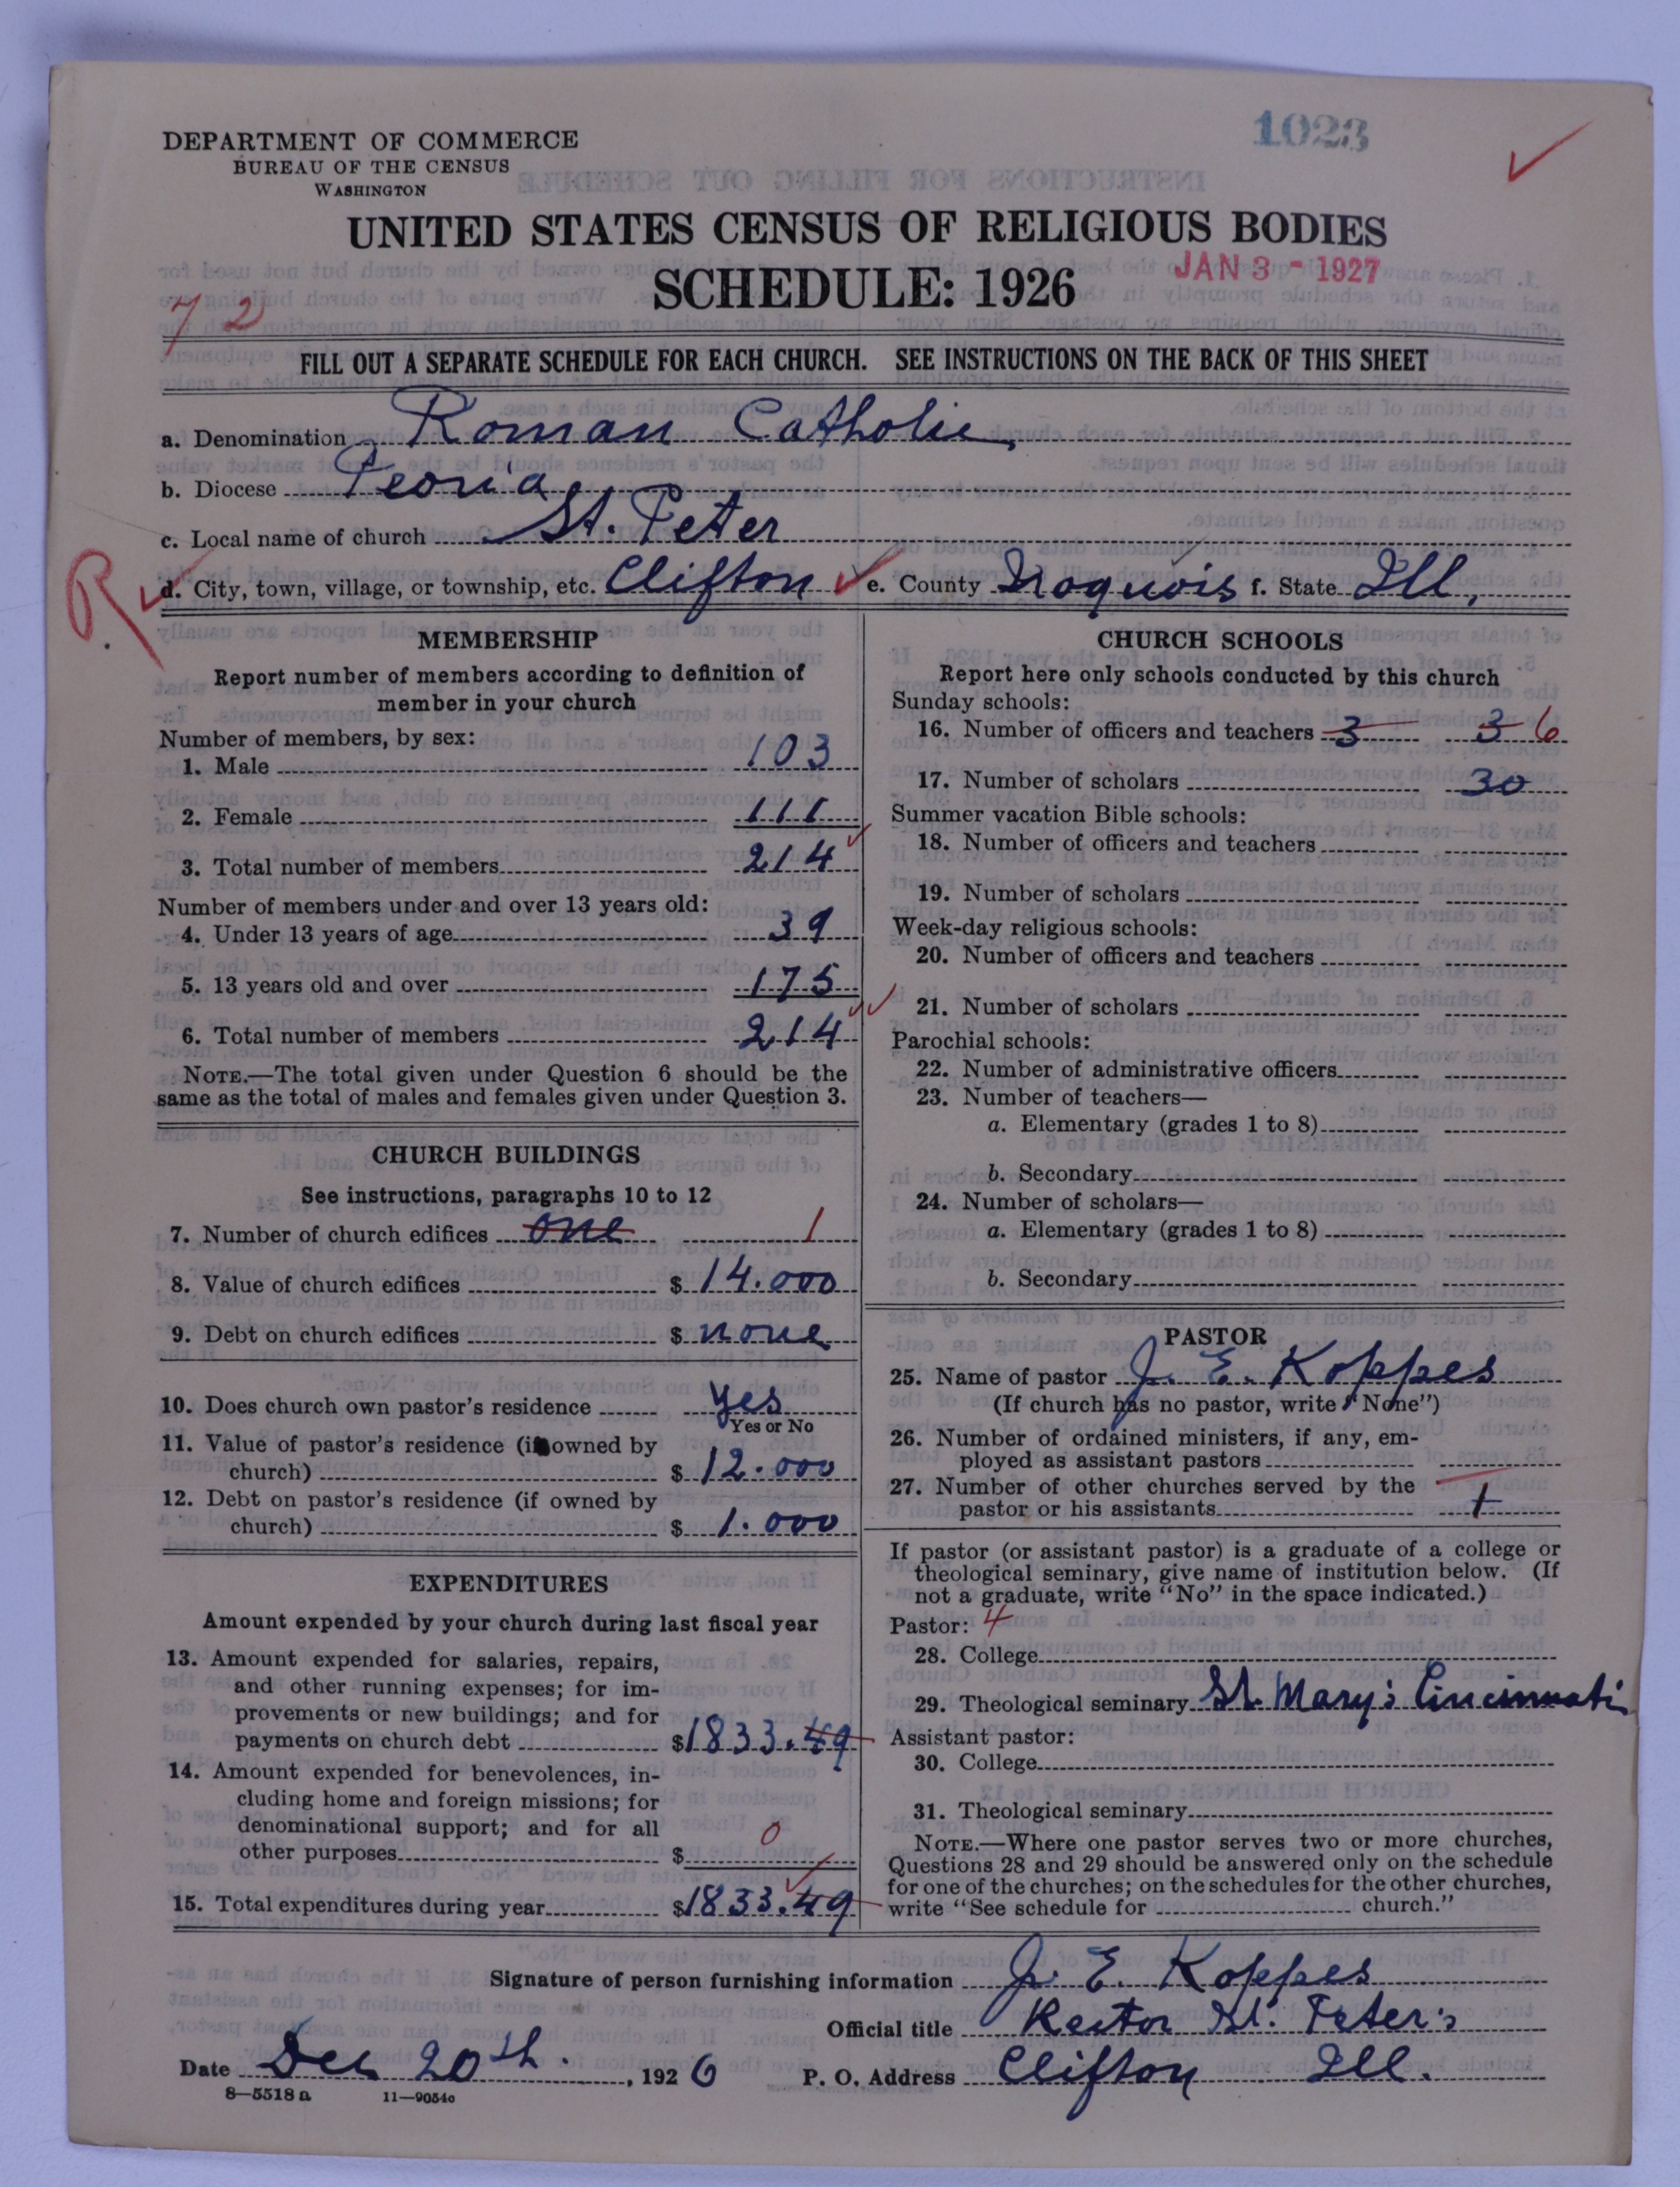 1023
DEPARTMENT OF COMMERCE
BUREAU OF THE CENSUS
WASHINGTON
UNITED STATES CENSUS OF RELIGIOUS BODIES
JAN 3 - 1927
SCHEDULE: 1926
72
FILL OUT A SEPARATE SCHEDULE FOR EACH CHURCH. SEE INSTRUCTIONS ON THE BACK OF THIS SHEET
a. Denomination Roman Catholic
b. Diocese Peoria
c. Local name of church St. Peter
R
d. City, town, village, or township, etc. Clifton e. County Iroquois f. State Ill,
MEMBERSHIP
Report number of members according to definition of
member in your church
Number of members, by sex:
1. Male 103
2. Female 111
3. Total number of members 214
Number of members under and over 13 years old:
4. Under 13 years of age 39
5. 13 years old and over 175
6. Total number of members 214
NOTE.—The total given under Question 6 should be the
same as the total of males and females given under Question 3.
CHURCH BUILDINGS
See instructions, paragraphs 10 to 12
7. Number of church edifices one 1
8. Value of church edifices $ 14.000
9. Debt on church edifices $ none
10. Does church own pastor's residence yes
Yes or No
11. Value of pastor's residence (if owned by
church) $ 12.000
12. Debt on pastor's residence (if owned by
church) $ 1.000
EXPENDITURES
Amount expended by your church during last fiscal year
13. Amount expended for salaries, repairs,
and other running expenses; for im-
provements or new buildings; and for
payments on church debt $1833.49
14. Amount expended for benevolences, in-
cluding home and foreign missions; for
denominational support; and for all
other purposes $ 0
15. Total expenditures during year $1833.49
CHURCH SCHOOLS
Report here only schools conducted by this church
Sunday schools:
16. Number of officers and teachers 3 3 6
17. Number of scholars 30
Summer vacation Bible schools:
18. Number of officers and teachers
19. Number of scholars
Week-day religious schools:
20. Number of officers and teachers
21. Number of scholars
Parochial schools:
22. Number of administrative officers
23. Number of teachers—
a. Elementary (grades 1 to 8)
b. Secondary
24. Number of scholars—
a. Elementary (grades 1 to 8)
b. Secondary
PASTOR
25. Name of pastor J. E. Koppes
(If church has no pastor, write "None")
26. Number of ordained ministers, if any, em-
ployed as assistant pastors
27. Number of other churches served by the
pastor or his assistants
If pastor (or assistant pastor) is a graduate of a college or
theological seminary, give name of institution below. (If
not a graduate, write "No" in the space indicated.)
Pastor: 4
28. College
29. Theological seminary St. Mary's Cincinnati
Assistant pastor:
30. College
31. Theological seminary
NOTE.—Where one pastor serves two or more churches,
Questions 28 and 29 should be answered only on the schedule
for one of the churches; on the schedules for the other churches,
write "See schedule for church."
Signature of person furnishing information J. E. Koppes
Official title Rector St. Peter's
Date Dec 20th. , 1926 P. O. Address Clifton Ill.
8—5518 a 11—9054c